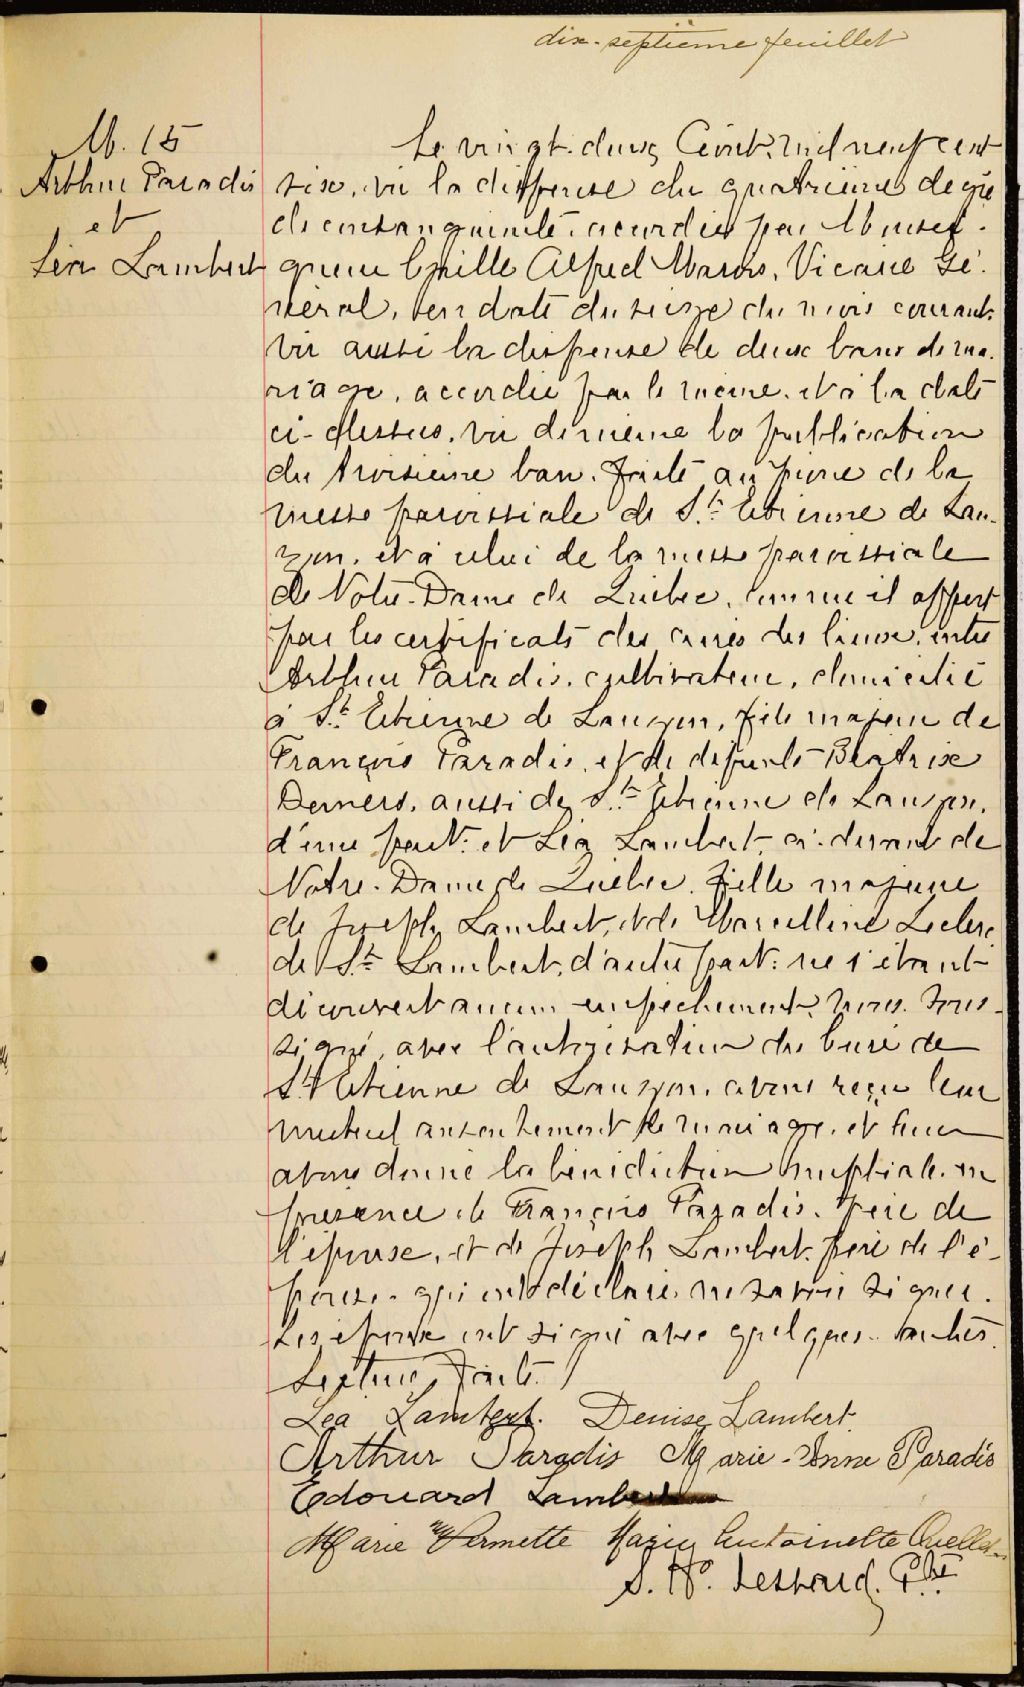 dix-septième feuillet
M. 15
Arthur Paradis
et
Léa Lambert
Le vingt-deux Août, mil neuf cent
six, vu la dispense du quatrième degré
de consanguinité, accordée par Monsei-
gneur Cyrille Alfred Marois, Vicaire Gé-
néral, en date du seize du mois courant,
vu aussi la dispense de deux bans de ma-
riage, accordée par le même, et à la date
ci-dessus, vu de même la publication
du troisième ban, faite au prône de la
messe paroissiale de St. Etienne de Lau-
zon, et à celui de la messe paroissiale
de Notre-Dame de Québec, comme il appert
par les certificats des curés des lieux, entre
Arthur Paradis, cultivateur, domicilié
à St. Etienne de Lauzon, fils majeur de
François Paradis, et de défunte Béatrix
Demers, aussi de St. Etienne de Lauzon,
d'une part: et Léa Lambert, ci-devant de
Notre-Dame de Québec, fille majeure
de Joseph Lambert, et de Marcelline Leclerc
de St. Lambert, d'autre part: ne s'étant
découvert aucun empêchement, nous, sous-
signé, avec l'autorisation du Curé de
St Etienne de Lauzon, avons reçu leur
mutuel consentement de mariage, et leur
avons donné la bénédiction nuptiale en
présence de François Paradis, père de
l'épouse, et de Joseph Lambert, père de l'é-
pouse, qui ont déclaré ne savoir signer.
Les époux ont signé avec quelques autres.
Lecture faite.
Léa Lambert. Denise Lambert
Arthur Paradis Marie-Anne Paradis
Edouard Lambert
Marie Vermette Marie Antoinette Ouellet
S. N. Lessard, Ptre